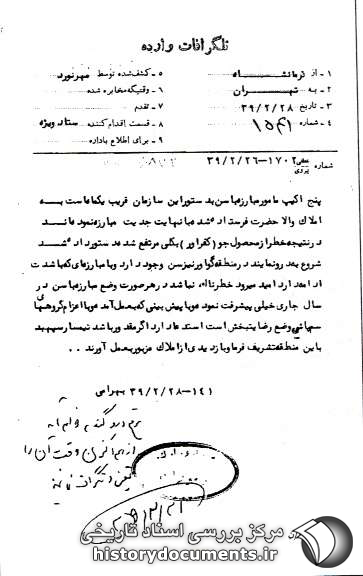 تلگرافات وارده
۱ - از کرمانشاه
۲ - به تهران
۳ - تاریخ ۳۹/۲/۲۸
۴ - شماره ۱۵۴۱
۵ - کشف شده توسط مهرنورد
۶ - وقتیکه مخابره شده
۷ - تقدم
۸ - قسمت اقدام کننده ستاد ویژه
۹ - برای اطلاع باداره
شماره ۱۷۰۲-۳۹/۲/۲۶
پنج اکیپ مامور مبارزه با سن بدستور این سازمان قریب یکماه است به
املاک والا حضرت فرستاده شده با نهایت جدیت مبارزه نموده اند
در نتیجه خطر از محصول جو (کفرآور) بکلی مرتفع شده دستور داده شد
شروع بدرو نمایند در منطقه گواور نیز سن وجود دارد و با مبارزه ای که با شدت
ادامه دارد امید میرود خطر نداشته باشد در هر صورت وضع مبارزه با سن در
سال جاری خیلی پیشرفت نموده و با پیش بینی که بعمل آمده و با اعزام گروههای
سمپاشی وضع رضایتبخش است استدعا دارد اگر مقدور باشد تیمسار سپهبد
باین منطقه تشریف فرما و بازدیدی از املاک مزبور بعمل آورند ..
۱۴۱-۳۹/۲/۲۸ بهرامی
وقت آن را
مرکز بررسی اسناد تاریخی
historydocuments.ir